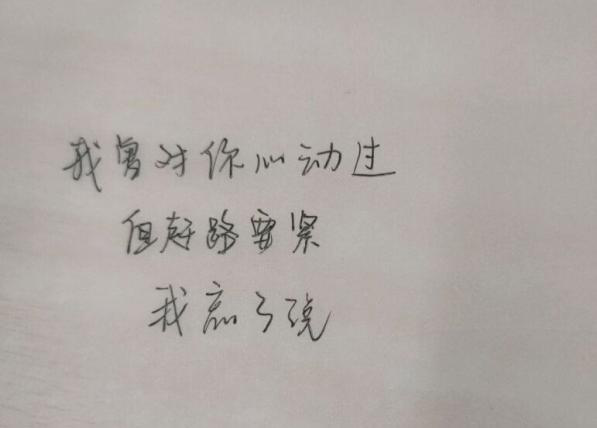 我曾对你心动过
但赶路要紧
我忘了说